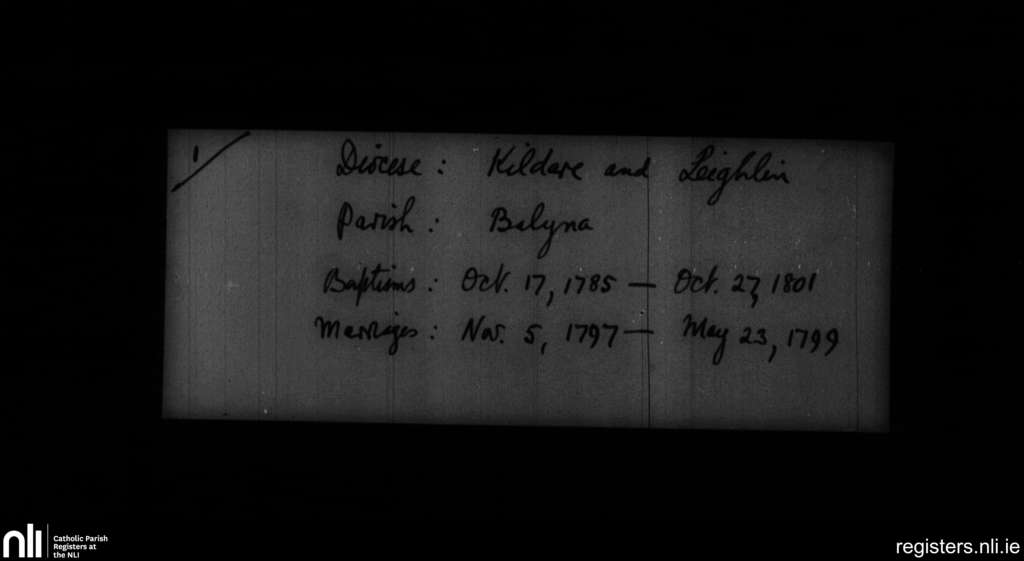 1
Diocese: Kildare and Leighlin
Parish: Balyna
Baptisms: Oct. 17, 1785 — Oct. 27, 1801
Marriages: Nov. 5, 1797 — May 23, 1799
nli Catholic Parish
Registers at
the NLI
registers.nli.ie